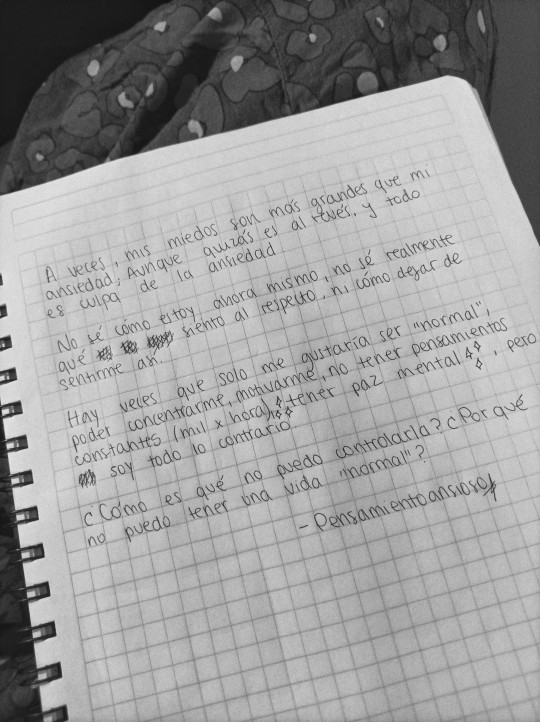 A veces, mis miedos son más grandes que mi
ansiedad; Aunque quizás es al revés, y todo
es culpa de la ansiedad
No sé cómo estoy ahora mismo, no sé realmente
qué siento al respecto, ni cómo dejar de
sentirme así.
Hay veces que solo me gustaría ser "normal",
poder concentrarme, motivarme, no tener pensamientos
constantes (mil x hora), tener paz mental, pero
soy todo lo contrario.
¿Cómo es qué no puedo controlarla? ¿Por qué
no puedo tener una vida "normal"?
- Pensamientoansioso